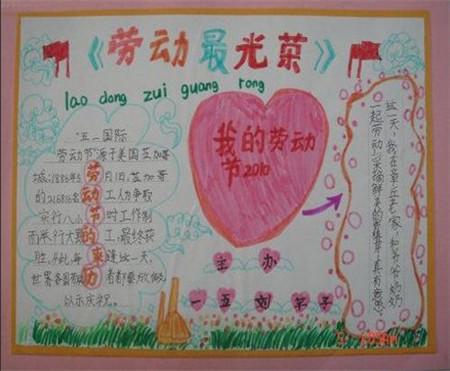 《劳动最光荣》
lao dong zui guang rong
"五一国际
劳动节"源于美国芝加哥
城.1886年5月1日,芝加哥
的216816名工人为争取
实行八小时工作制
而举行大罢工,最终获
胜.从此,每逢这一天,
世界各国
者都要放假
以示庆祝.
劳动节的来历
我的劳动
节2010
主办
一五 刘子
这一天,我在章丘老家,和爷爷奶奶
一起劳动,采摘鲜美的香椿芽,真有意思!